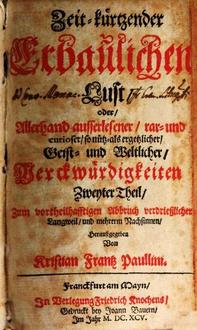 Zeit-kürtzender
Erbaulichen
Lust
oder/
Allerhand ausserlesener/ rar- und
curioser/ so nütz- als ergetzlicher/
Geist- und Weltlicher/
Merckwürdigkeiten
Zweyter Theil/
Zum vortheilhafftigen Abbruch verdrießlicher
Langweil/ und mehrerm Nachsinnen/
Herausgegeben
Von
Kristian Frantz Paullini.
Franckfurt am Mayn/
In Verlegung Friedrich Knochens/
Gedruckt bey Joann Bauern/
Im Jahr M DC. XCV.